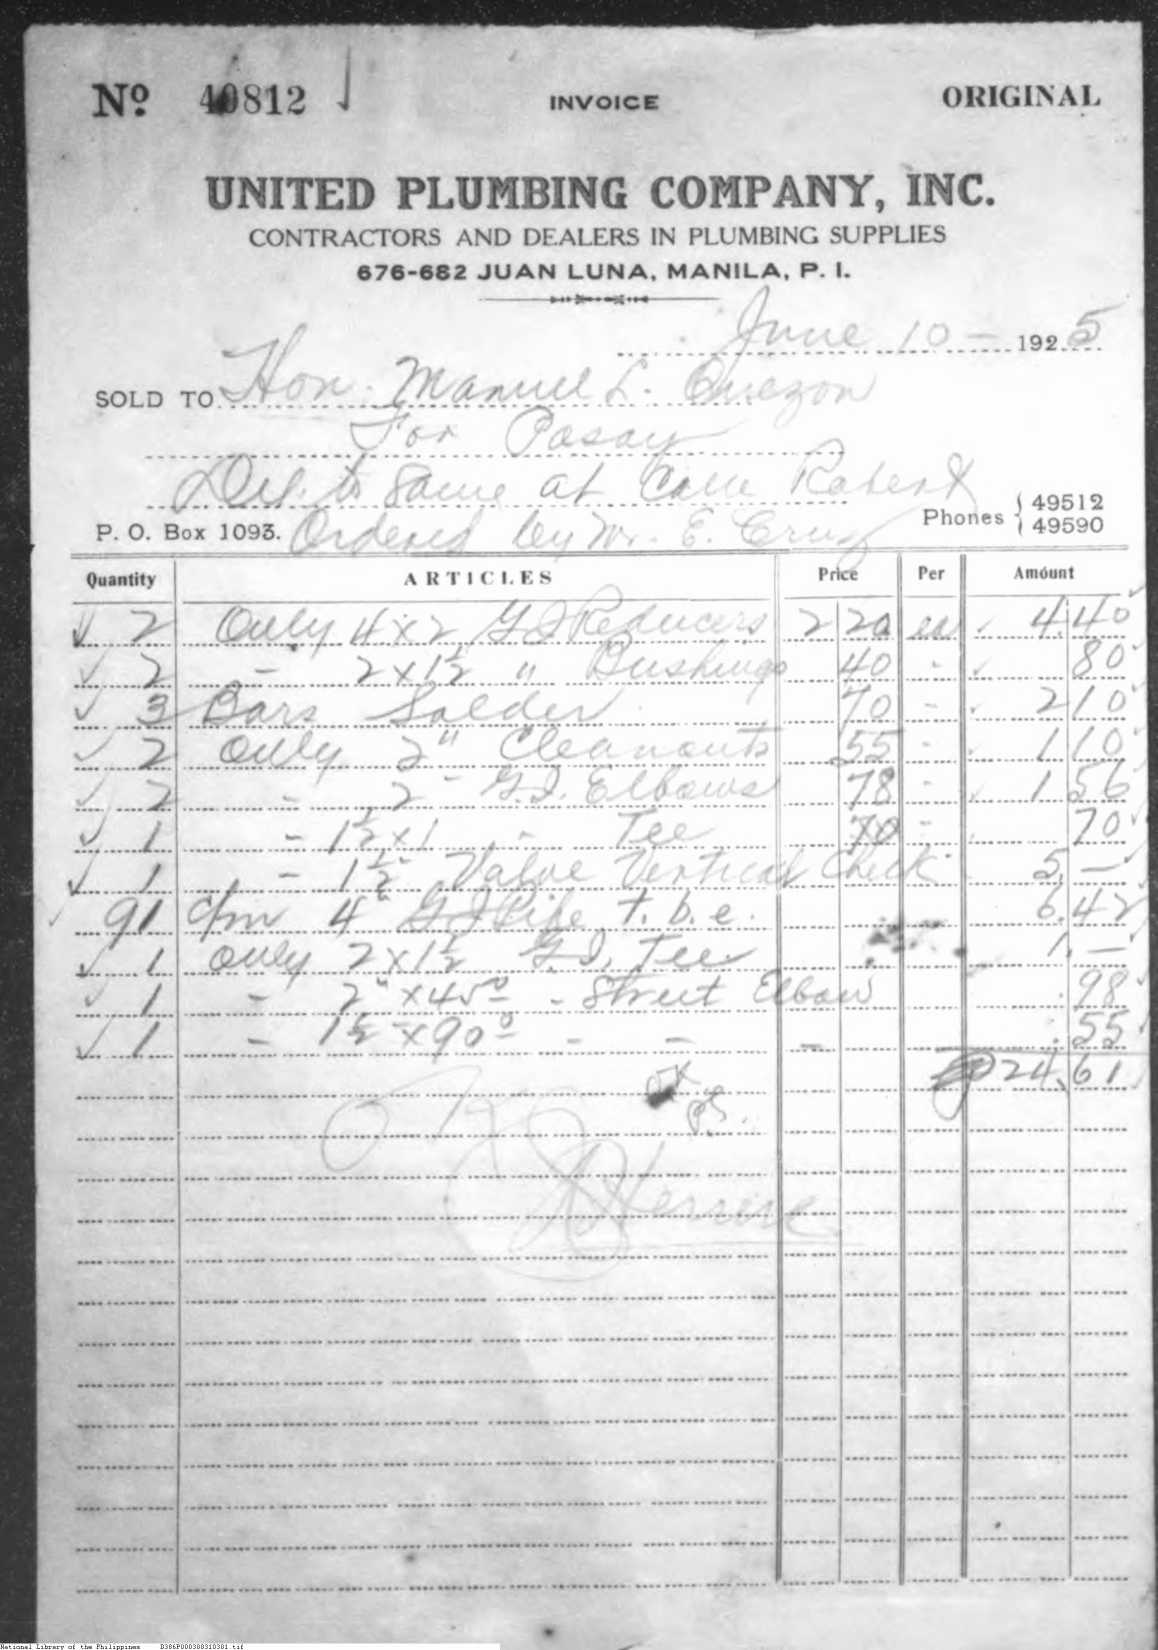 No. 40812 INVOICE ORIGINAL
UNITED PLUMBING COMPANY, INC.
CONTRACTORS AND DEALERS IN PLUMBING SUPPLIES
676-682 JUAN LUNA, MANILA, P. I.
June 10 - 1925
SOLD TO Hon. Manuel L. Quezon
For Pasay
Del. to Same at Calle Robert
Phones 49512
49590
P. O. Box 1093. Ordered by Mr. E. Cruz
Quantity ARTICLES Price Per Amount
2 Only 4 x 2 G I Reducers 2 20 ea 4.40
2 - 2 x 1 1/2 " Bushings 40 - 80
3 Bars Solder 70 - 2 10
2 only 2" Cleanouts 55 - 1 10
2 - 2" G.I. Elbows 78 - 1 56
1 - 1 1/2 x 1 - Tee 70 - 70
1 - 1 1/2" Valve Vertical Check 5. -
91 c/m 4" G I Pipe t.b.e. 6.42
1 only 2 x 1 1/2 G.I. Tee 1. -
1 - 2" x 45° - Street Elbow .98
1 - 1 1/2 x 90° - - - .55
₱ 24.61
OK
OK
National Library of the Philippines B386P000380310301.tif